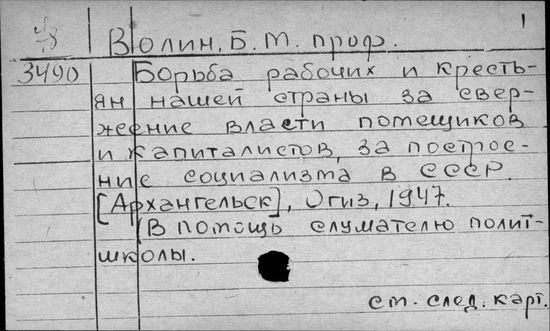 1
Волин, Б. М. проф.
3490 Борьба рабочих и кресть-
ян нашей страны за свер-
жение власти помещиков
и капиталистов, за построе-
ние социализма в СССР.
[Архангельск], Огиз, 1947.
(В помощь слушателю полит-
школы.
ст. след. карт.